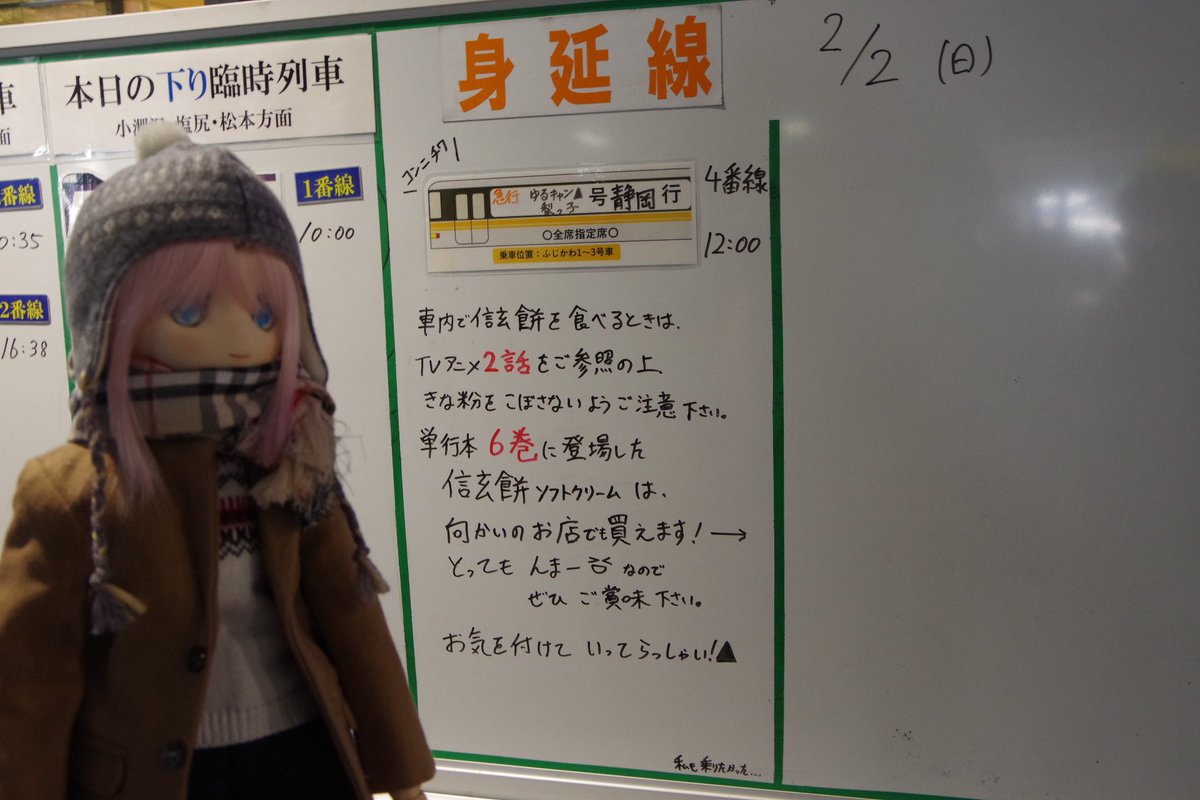 車
面
番線
0:35
2番線
16:38
本日の下り臨時列車
塩尻・松本方面
1番線
10:00
身延線
2/2 (日)
コンニチワ!
急行 ゆるキャン▲ 梨っ子 号 静岡行
○全席指定席○
乗車位置:ふじかわ1~3号車
4番線
12:00
車内で信玄餅を食べるときは、
TVアニメ2話をご参照の上、
きな粉をこぼさないようご注意下さい。
単行本 6巻に登場した
信玄餅ソフトクリームは、
向かいのお店でも買えます!→
とっても んまー なので
ぜひ ご賞味下さい。
お気を付けて いってらっしゃい!▲
私も乗りたかった....